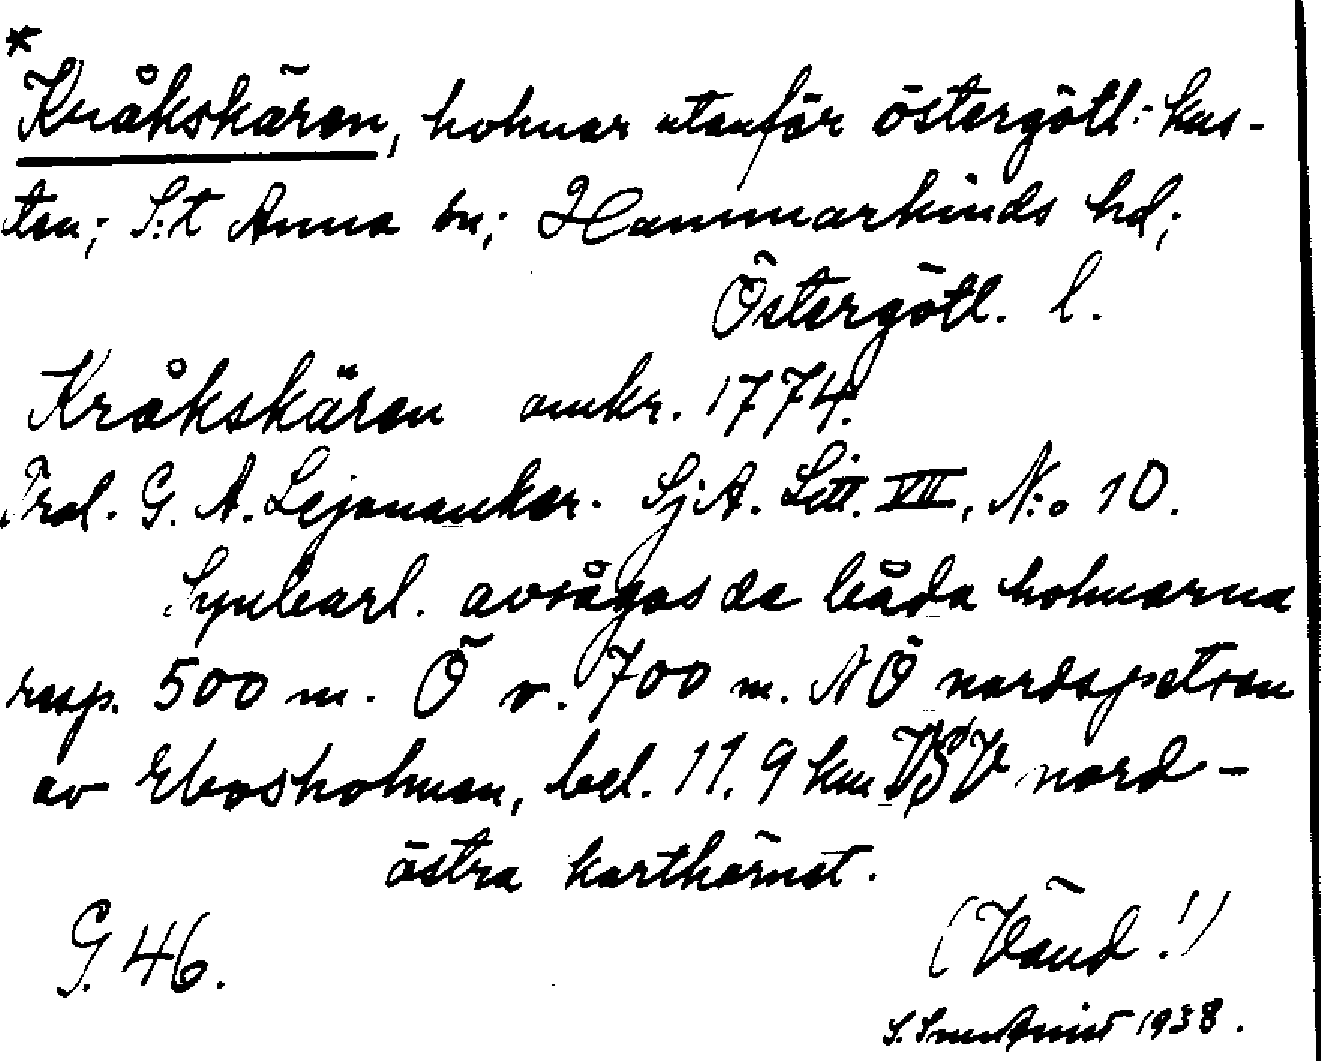 *
Kråkskären, holmar utanför östergötl: kus-
ten; S:t Anna sn; Hammarkinds hd;
Östergötl. l.
Kråkskären omkr. 1774.
G. A. Lejonanker. Sj.A. Litt. VII, N:o 10.
Synbarl. avsågos de båda holmarna
resp. 500 m. Ö o. 700 m. NÖ nordspetsen
av Ebosholmen, bel. 11.9 km VSV nord-
östra karthörnet.
G. 46.
(Vänd!)
1938.